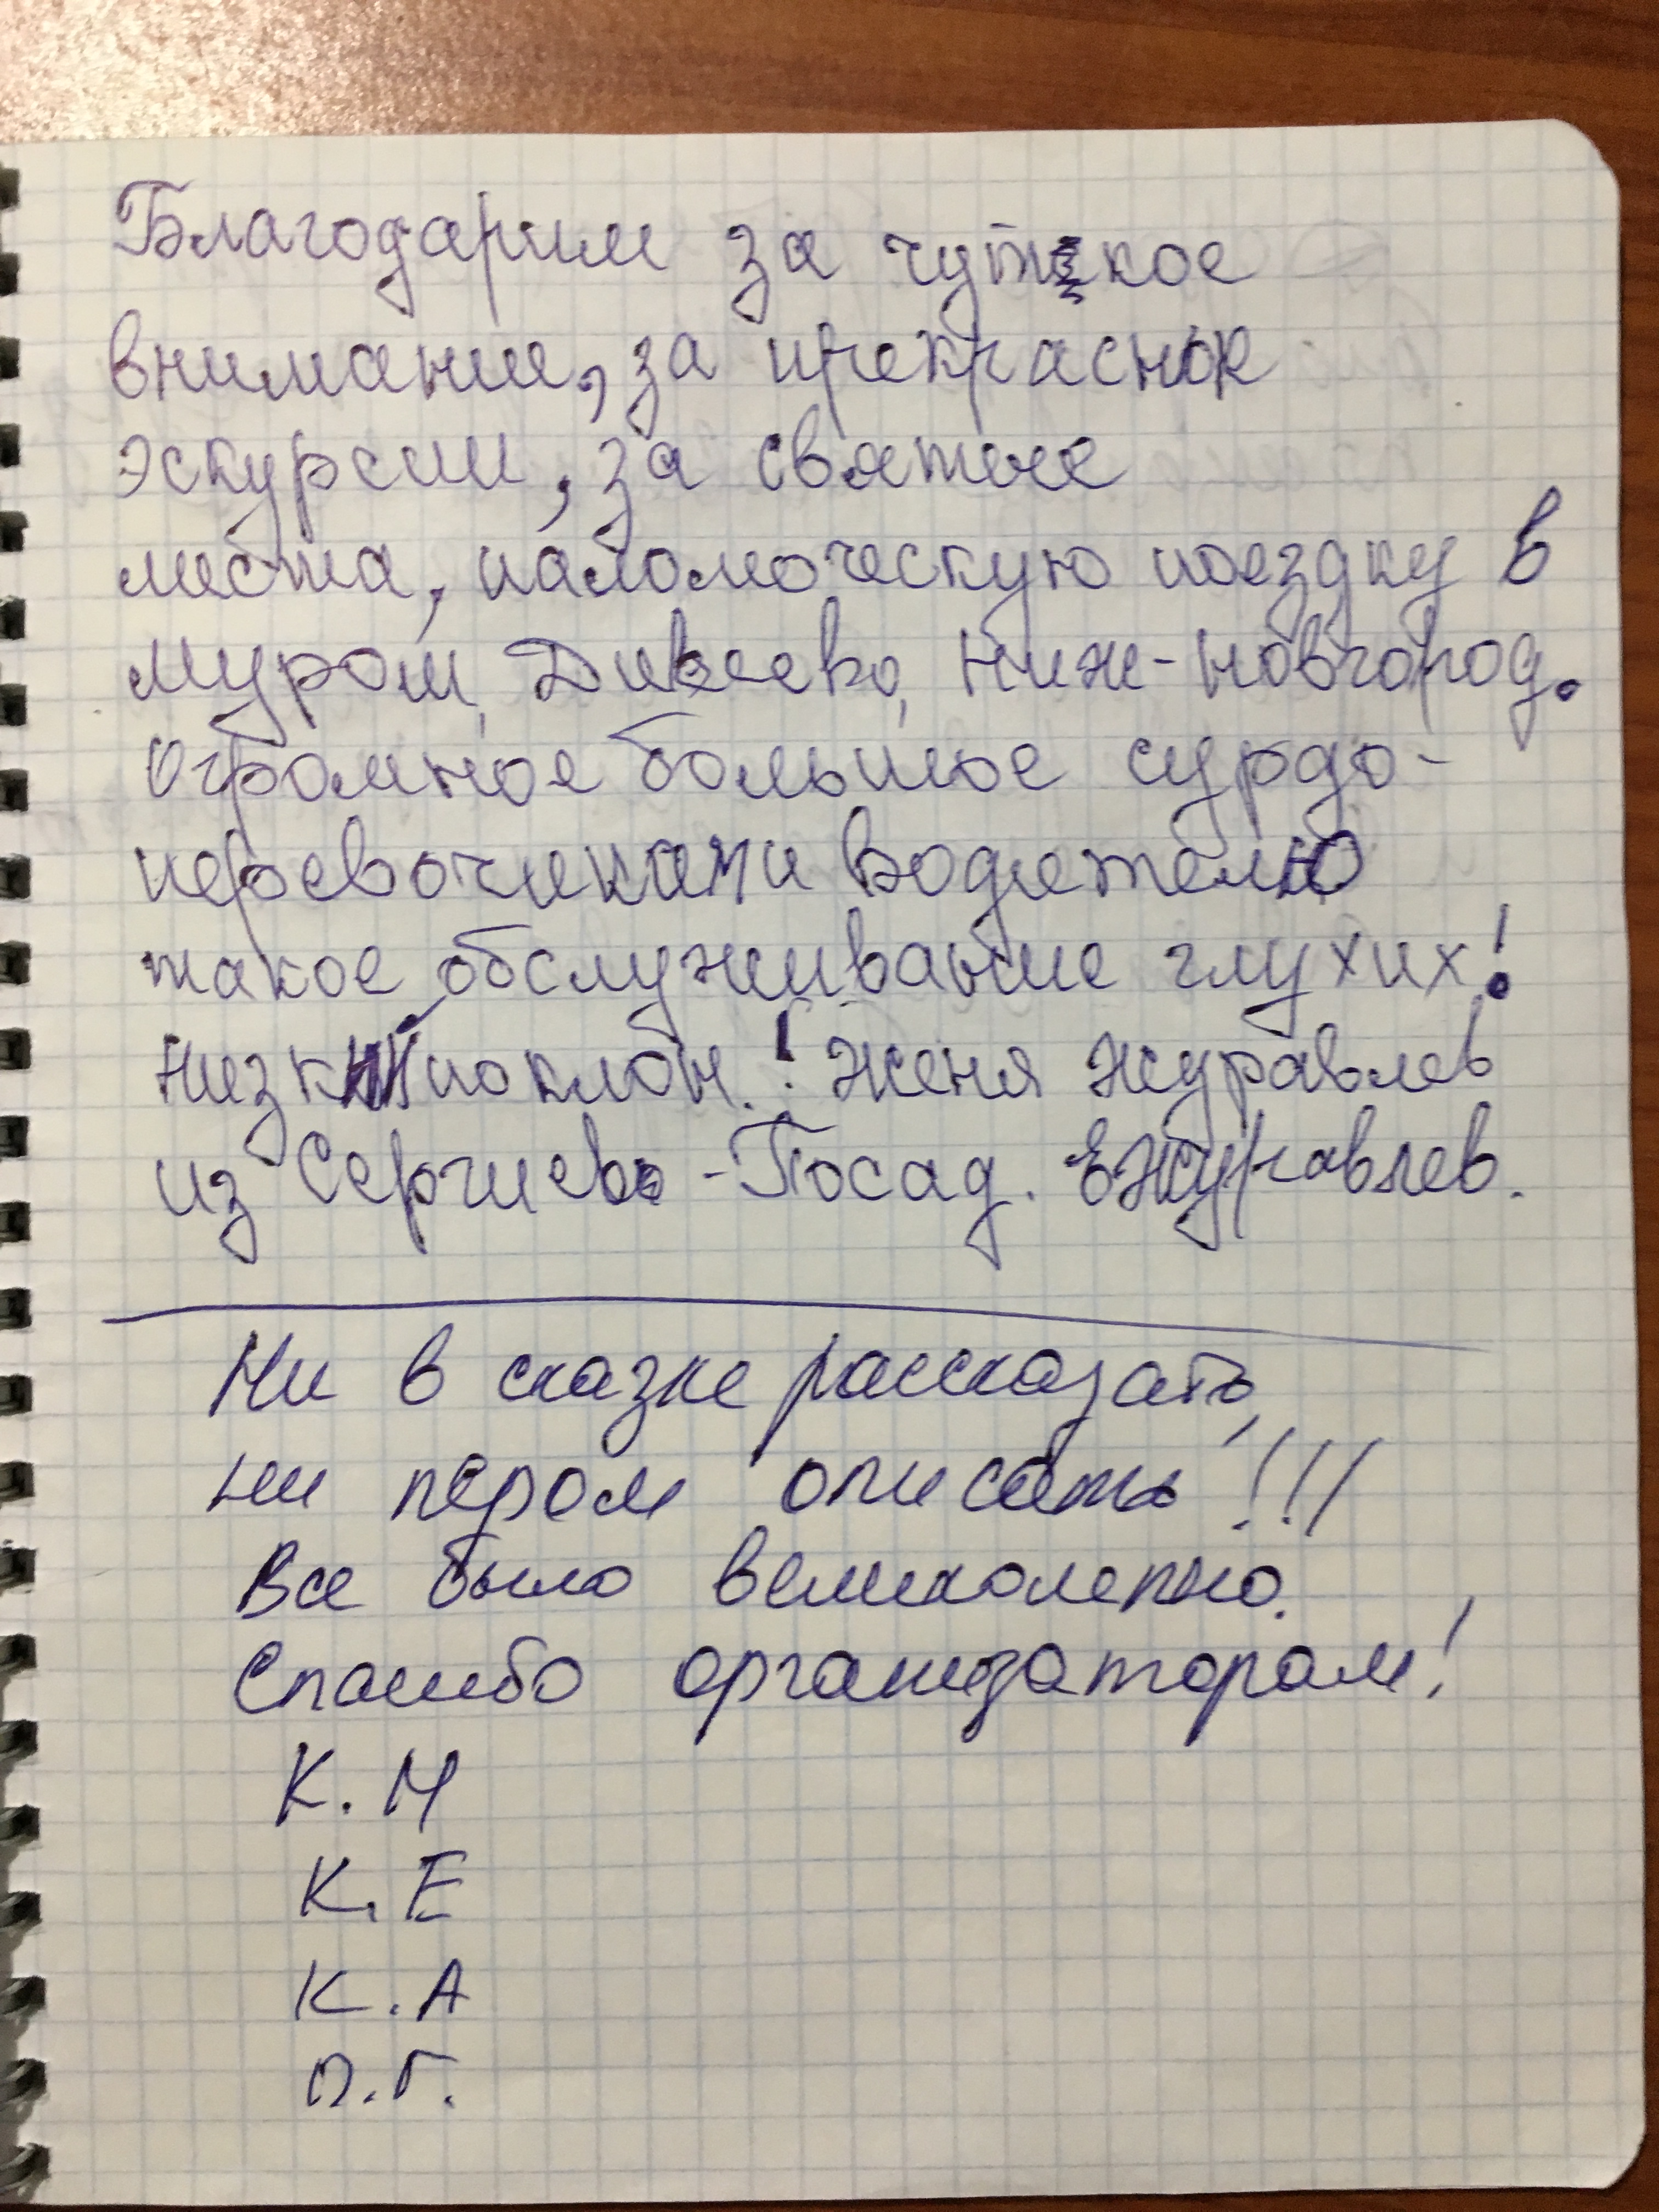 Благодарим за чуткое
внимание, за прекрасное
эскурсии, за святые
места, паломоческую поездку в
Муром, Дивеево, Ниж-Новгород.
Огромное большое сурдо-
переводчикам и водителю
такое обслуживание глухих!
Низкий поклон! Женя Журавлев
из Сергиево-Посад. ЕЖуравлев.
Ни в сказке рассказать,
ни пером описать!!!
Все было великолепно.
Спасибо организаторам!
К.М
К.Е
К.А
П.Г.